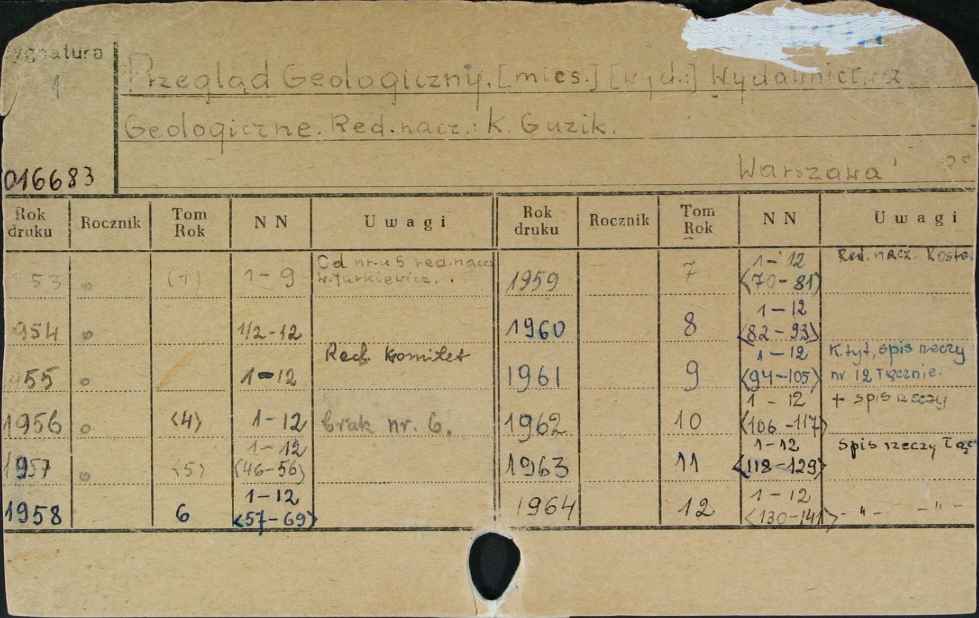 ygnatura
1
Przegląd Geologiczny. [mies.] [wyd.:] Wydawnictwa
Geologiczne. Red. nacz.: K. Guzik.
Warszawa
016683
Rok druku Rocznik Tom Rok NN Uwagi Rok druku Rocznik Tom Rok NN Uwagi
53 (1) 1-9 Od nr-u 5 red. nacz. W. Jurkiewicz. 1959 7 1-12 <70-81> Red. nacz.
954 1/2-12 1960 8 1-12 <82-93>
55 1-12 Red. Komitet 1961 9 1-12 <94-105> K. tyt, spis rzeczy nr 12 łącznie.
1956 <4> 1-12 brak nr. 6. 1962 10 1-12 <106-117> + spis rzeczy
1957 <5> 1-12 <46-56> 1963 11 1-12 <118-129> spis rzeczy łąc
1958 6 1-12 <57-69> 1964 12 1-12 <130-141> - " - - " -